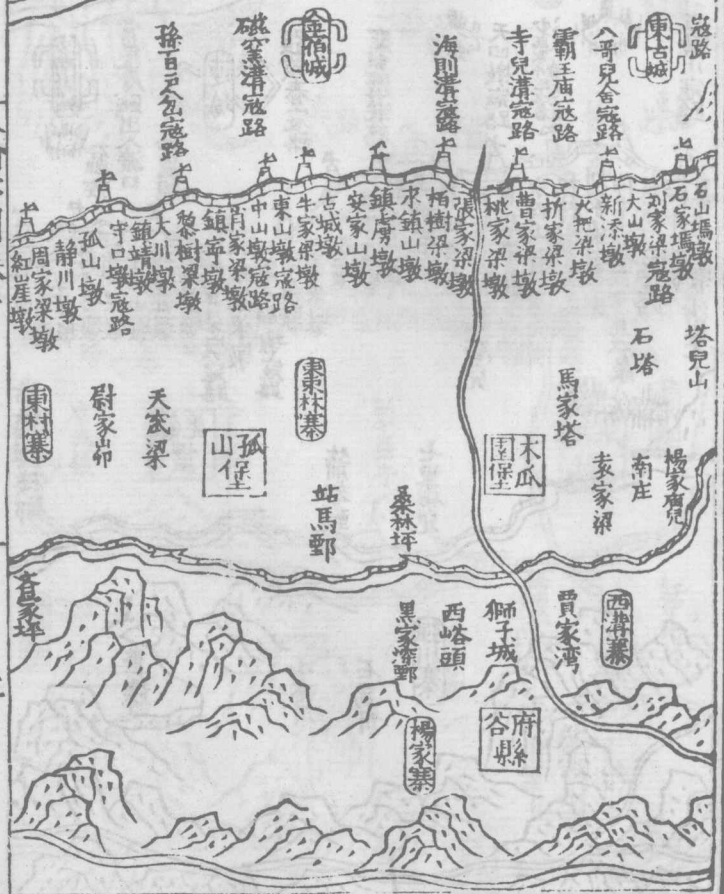 寇路
東古城
八哥兒舍寇路
霸王庙寇路
寺兒溝寇路
海則溝寇路
金宿城
磁窯溝寇路
孫百戶仓寇路
石山墕墩
石家墕墩
刘家梁寇路
大山墩
新添墩
火把梁墩
折家梁墩
曹家梁墩
桃家梁墩
張家梁墩
柏樹梁墩
永鎮山墩
鎮虜墩
安家山墩
古城墩
牛家梁墩
東山墩寇路
中山墩寇路
肖家梁墩
鎮寧墩
黎樹梁墩
大川墩
鎮靖墩
守口墩寇路
孤山墩
静川墩
周家梁墩
紅崖墩
塔兒山
石塔
馬家塔
楊家㢑兒
南庄
袁家梁
木瓜園堡
東林寨
孤山堡
天武梁
尉家峁
東村寨
桑林坪
站馬鄄
西溝寨
賈家湾
獅子城
西峪頭
黑家寨鄄
府谷縣
楊家寨